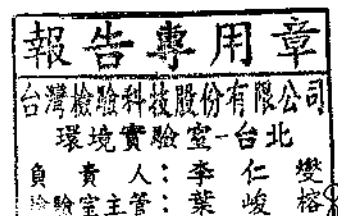 報告專用章
台灣檢驗科技股份有限公司
環境實驗室-台北
負責人：李仁燮
驗室主管：葉峻榕